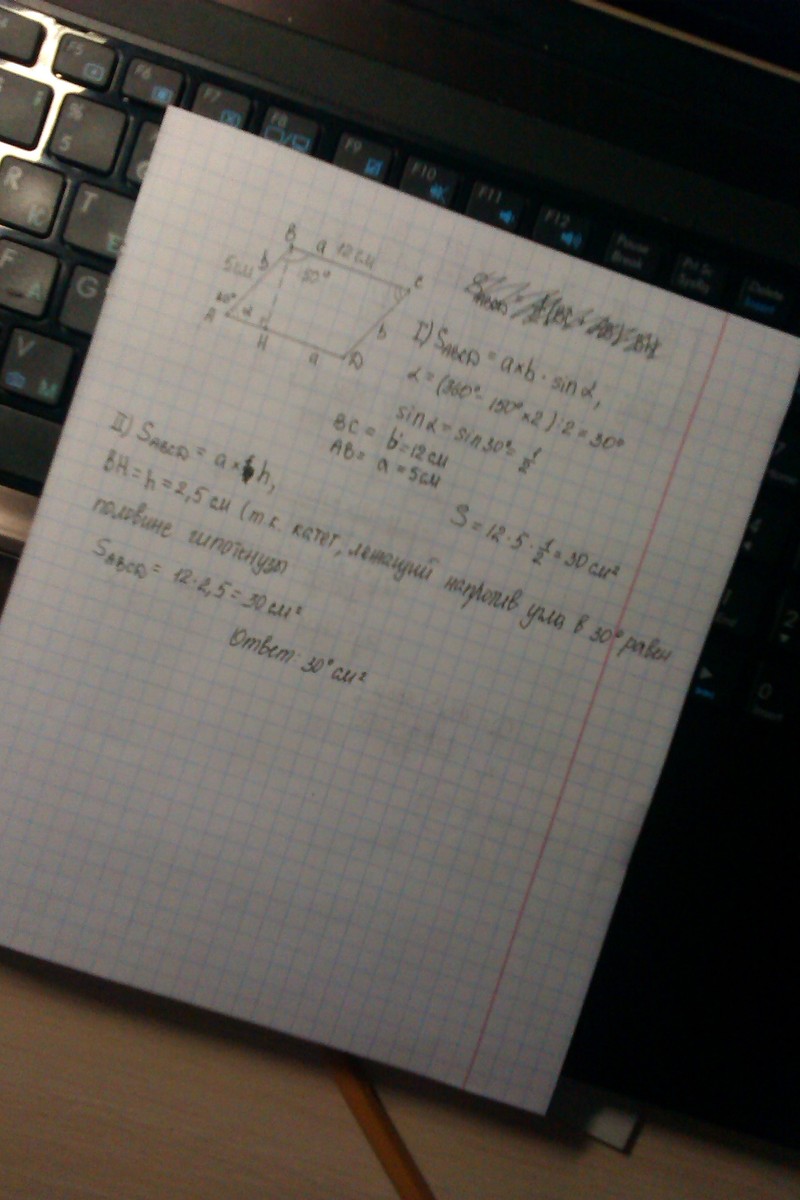 F5
F6
F7
F8
F9
F10
F11
F12
Pause
Break
Prt Sc
SysRq
Delete
Insert
%
5
R
T
F
A
G
V
М
2
0
B a 12 см
5см b 150° C
30° α
A H a D b
I) S ABCD = a×b·sin α,
α = (360° - 150°×2) : 2 = 30°
sin α = sin 30° = 1/2
BC = b = 12 см
AB = a = 5 см
S = 12·5·1/2 = 30 см²
II) S ABCD = a × h,
BH = h = 2,5 см (т.к. катет, лежащий напротив угла в 30° равен
половине гипотенузы
S ABCD = 12·2,5 = 30 см²
Ответ: 30° см²